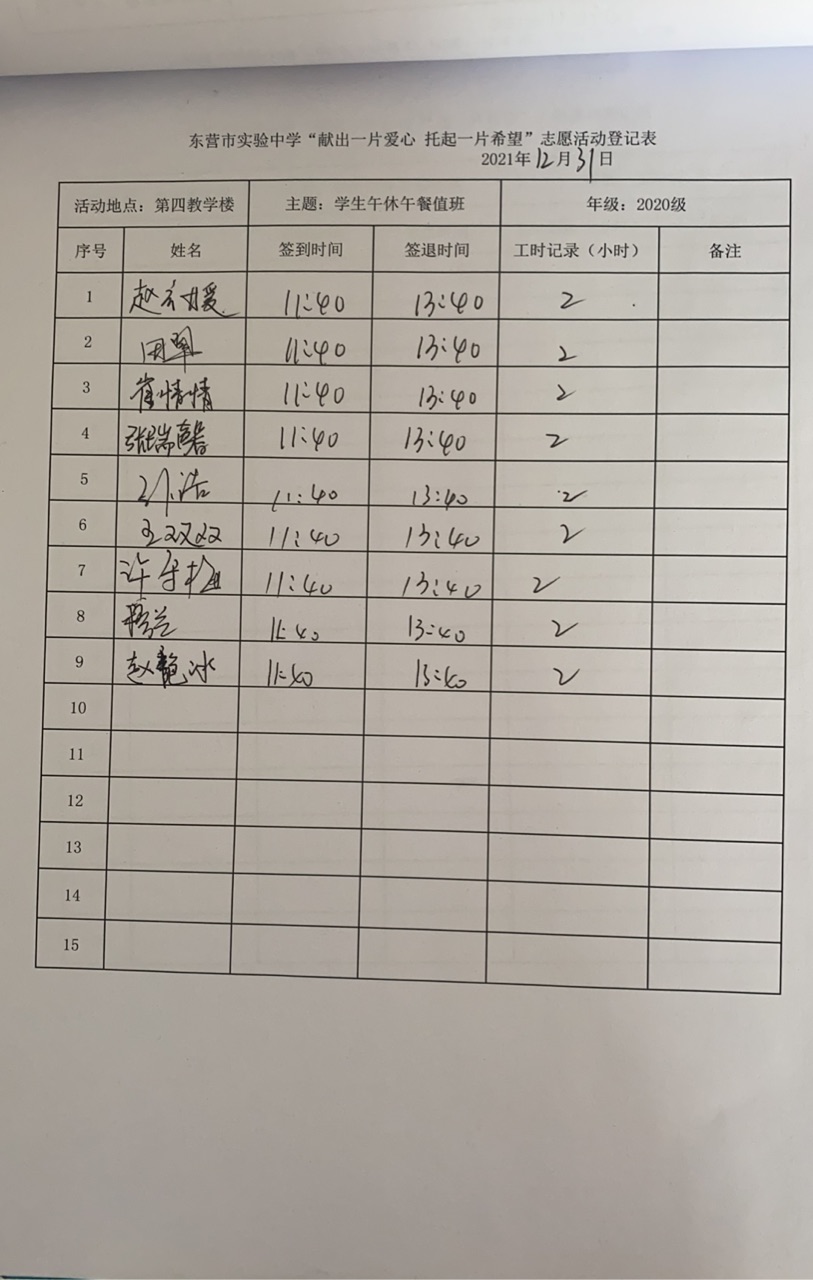 东营市实验中学“献出一片爱心 托起一片希望”志愿活动登记表
2021年12月31日
活动地点：第四教学楼 主题：学生午休午餐值班 年级：2020级
序号 姓名 签到时间 签退时间 工时记录（小时） 备注
1 赵 媛 11:40 13:40 2
2 田翠 11:40 13:40 2
3 崔情情 11:40 13:40 2
4 张瑞馨 11:40 13:40 2
5 孙浩 11:40 13:40 2
6 王双双 11:40 13:40 2
7 许守 11:40 13:40 2
8 11:40 13:40 2
9 赵艳冰 11:40 13:40 2
10
11
12
13
14
15